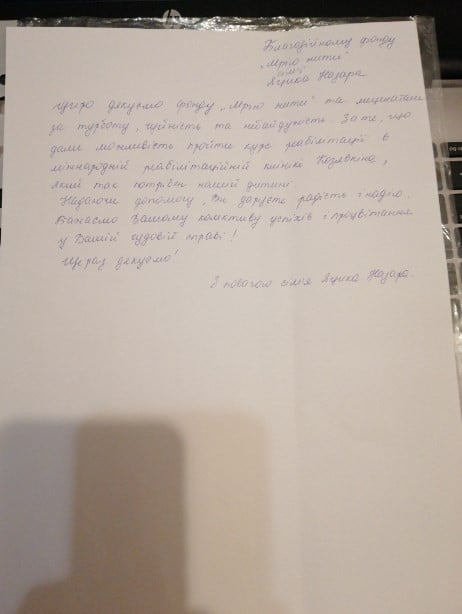 Благодійному фонду
„Мрію жити"
сім'ї
Яцика Назара
Щиро дякуємо фонду „Мрію жити" та меценатам
за турботу, чуйність та небайдужість. За те, що
дали можливість пройти курс реабілітації в
міжнародній реабілітаційній клініці Козявкіна,
який так потрібен нашій дитині.
Надаючи допомогу, Ви даруєте радість і надію.
Бажаємо Вашому колективу успіхів і процвітання
у Вашій чудовій справі!
Ще раз дякуємо!
З повагою сім'я Яцика Назара.